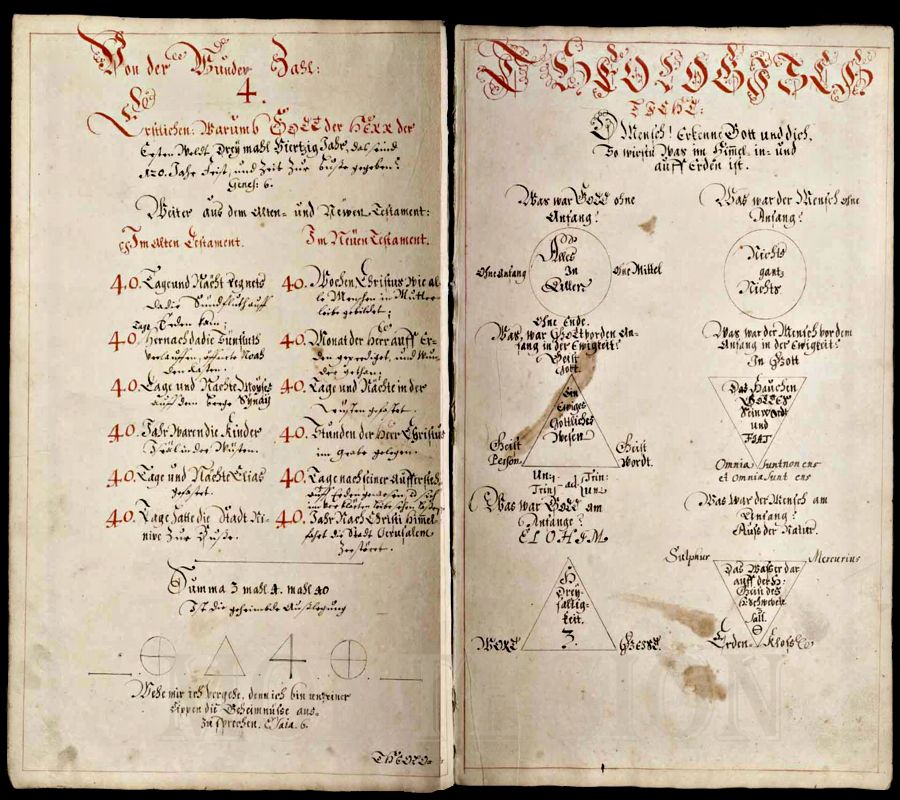 Von der Wunder Zahl:
4.
Erstlichen: Warumb GOTT der HERR der
Ersten Weldt Drey mahl Viertzig Jahr, das sind
120. Jahr Frist, und Zeit Zur Buße gegeben?
Genes: 6.
Weiter aus dem Alten- und Newen Testament:
Im Alten Testament.
40. Tage und Nächt regnets
da die Sündfluth auff
Erden kam;
40. Tage hernach da die Sünfluth
verlauffen, öffnete Noah
den Kasten.
40. Tage und Nächte Moyses
auff dem Berge Synay
40. Jahr waren die Kinder
Israel in der Wüsten.
40. Tage und Nächt Elias
gefastet.
40. Tage hatte die Stadt Ni-
nive Zur Buße.
Im Neüen Testament.
40. Wochen Christus wie al-
le Menschen in Mutter-
leibe gebildet;
40. Monat der Herr auff Er-
den geprediget, und Wun-
der gethan;
40. Tage und Nächte in der
Wüsten gefastet.
40. Stunden der Herr Christus
im Grabe gelegen.
40. Tage nach seiner Aufferstehung
auff Erden
40. Jahr Nach Christi Himmel-
fahrt die Stadt Jerusalem
Zerstöret.
Summa 3 mahl 4. mahl 40
Ist die geheimbde Außlegung
4
Wehe mir ich vergehe, denn ich bin unreiner
Lippen die Geheimnüsse aus-
zusprechen. Esaia. 6.
THEOLO-
THEOLOGISCH
LICHT:
O Mensch! Erkenne Gott und dich,
So wirstu Was im Himel- in- und
auff Erden ist.
Was war GOTT ohne
Anfang?
Ohne Anfang
Alles
In
Allem
Ohne Mittel
Ohne Ende.
Was war GOtt vor dem An-
fang in der Ewigkeit?
Geist
Gott.
Ein
Ewiges
Göttliches
Wesen
Geist
Person.
Geist
Wordt.
Uni- ad Trin:
Trini- et Uni:
Was war GOTT am
Anfange?
ELOHIM
H
Drey-
faltig-
keit.
3.
WORT
GEIST.
Was war der Mensch ohne
Anfang?
Nichts
gantz
Nichts
Was war der Mensch vor dem
Anfang in der Ewigkeit?
In Gott
Das Hauchen
GOTTES
Sein Wordt
und
FIAT
Omnia sunt non ens
et Omnia sunt ens
Was war der Mensch am
Anfang?
Auß der Natur.
Sulphur
Mercurius
Das Waßer dar
auff der H:
Geist des
Schwebete
Sall.
Erden Kloß